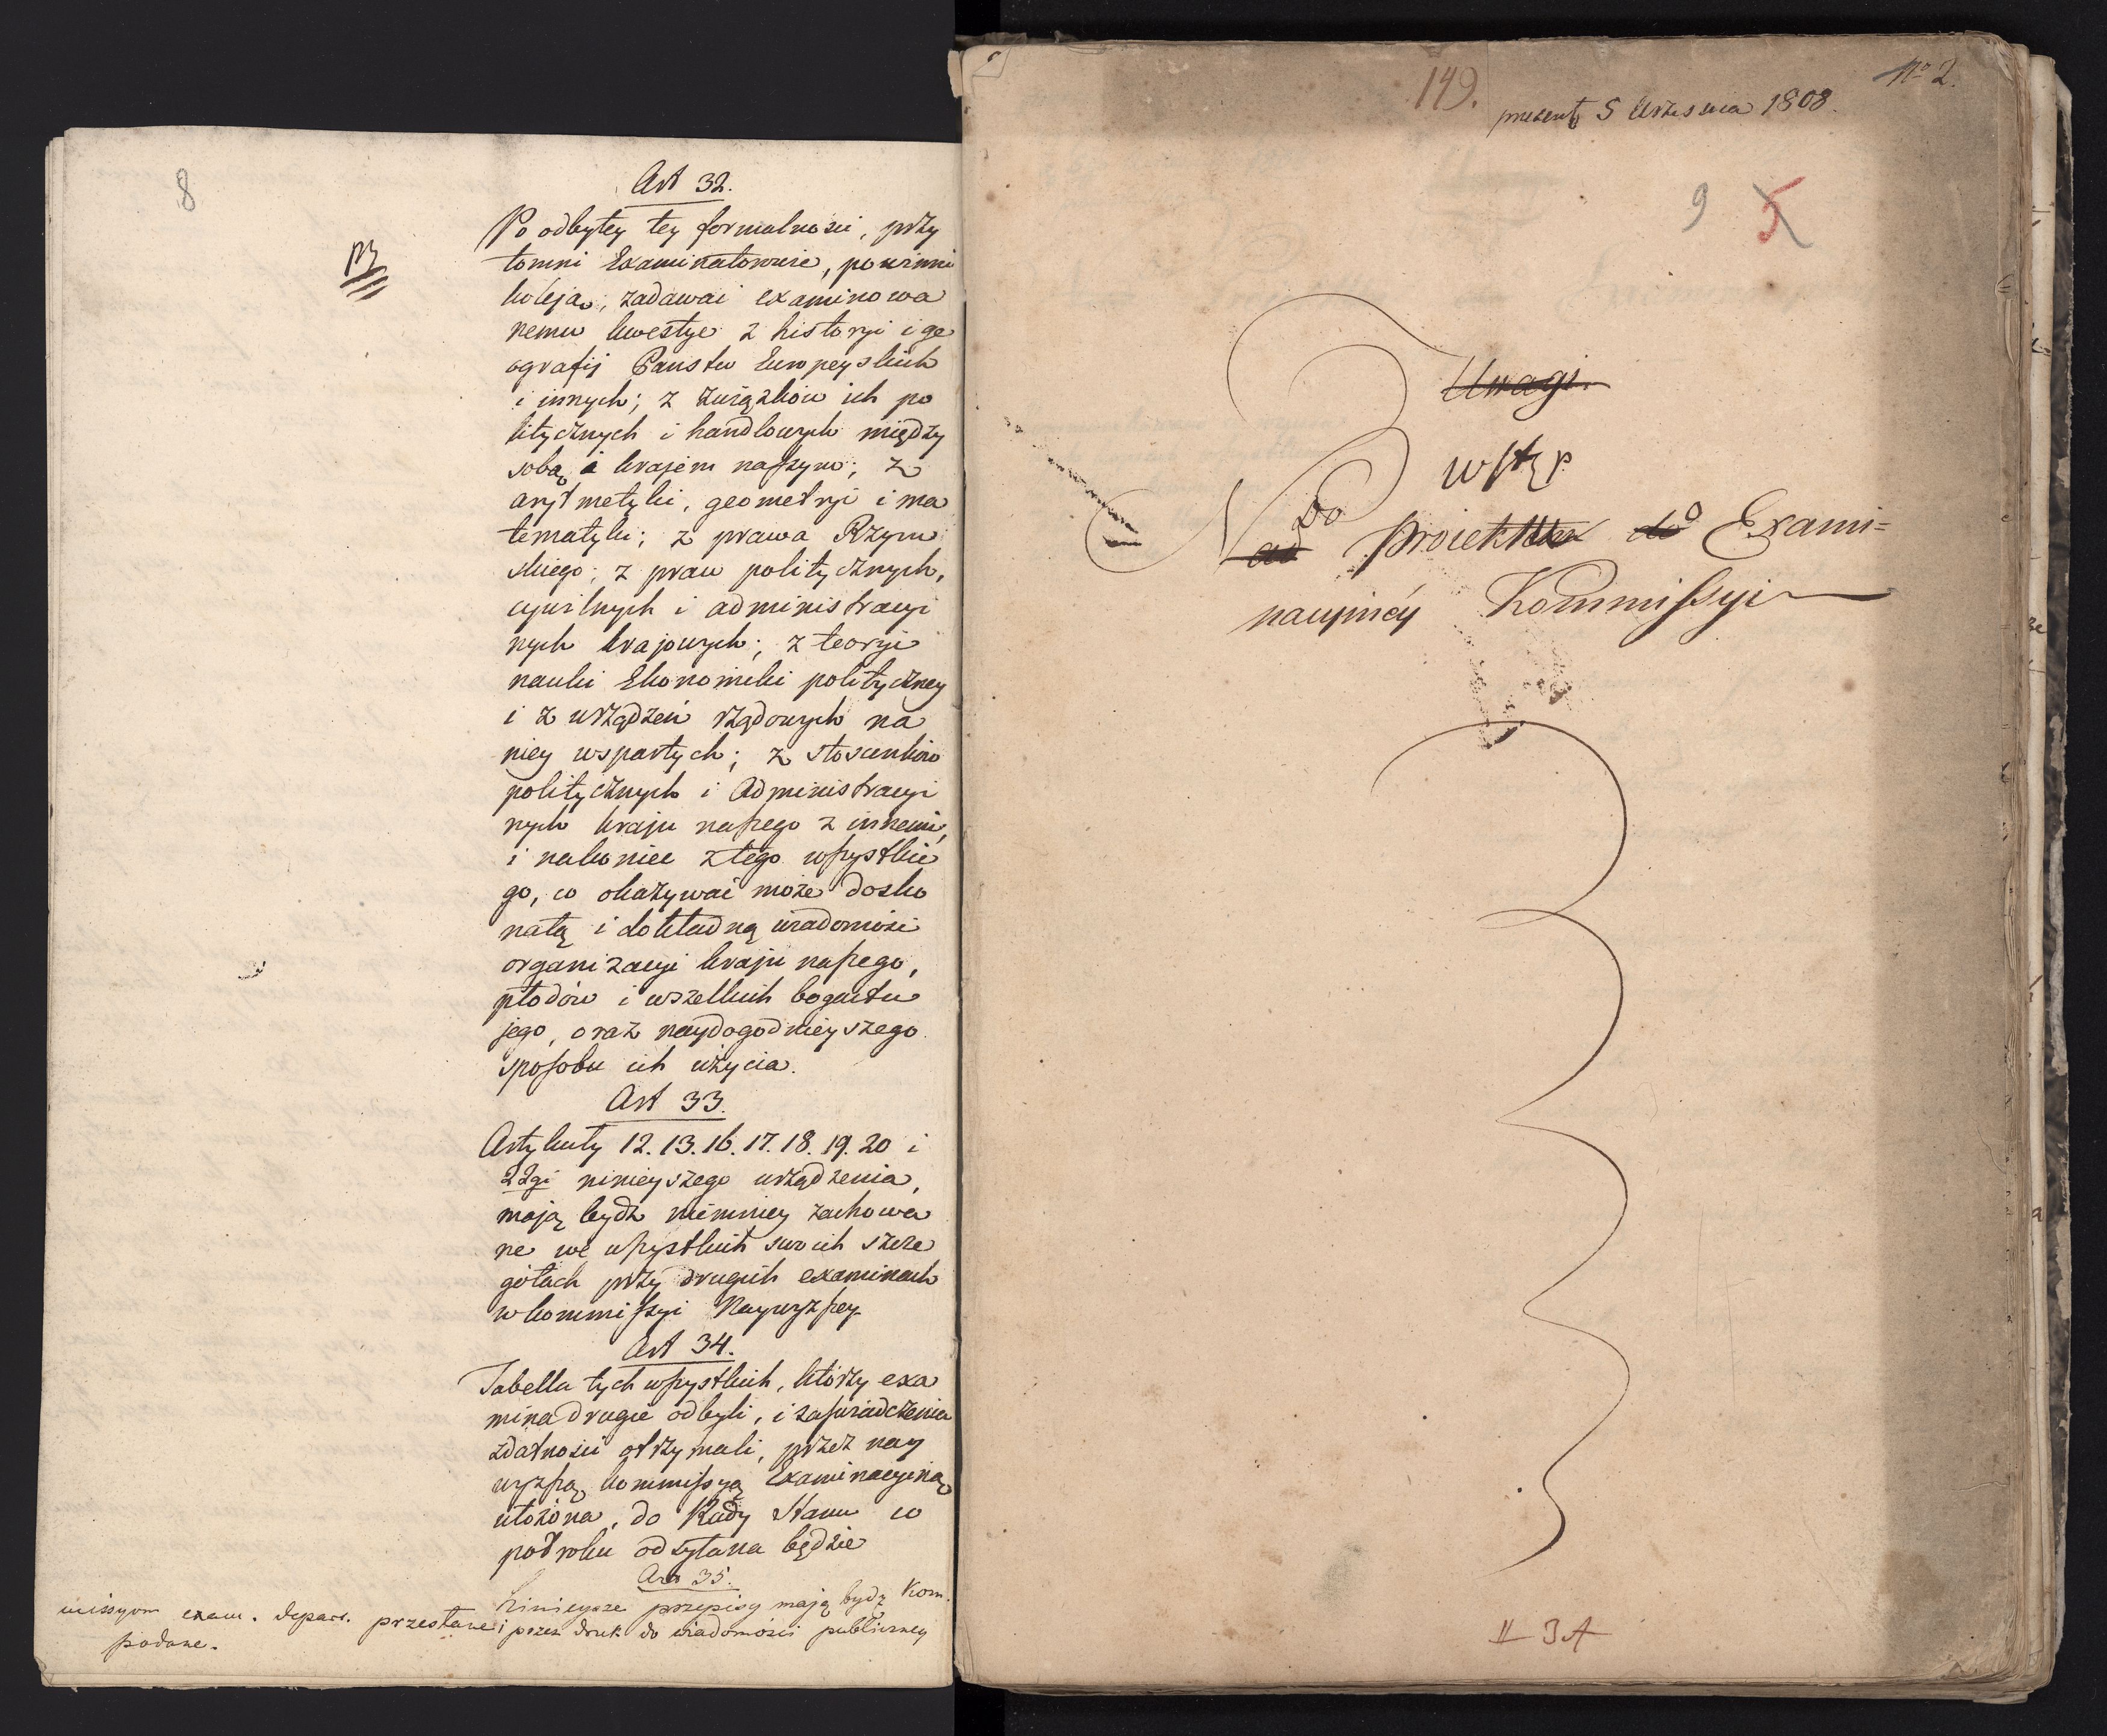 8
Art 32.
Po odbytey tey formalności, przy
tomni Examinatorowie, powinni
koleją, zadawać examinowa
nemu kwestye z historyi i ge
ografij Państw Europeyskich
i innych; z związków ich po
litycznych i handlowych między
sobą i krajem naszym; z
arytmetyki, geometryi i ma
tematyki; z prawa Rzym
skiego; z praw politycznych,
cywilnych i administracyi
nych krajowych; z teoryi
nauki Ekonomiki polityczney
i z urządzeń rządowych na
niey wspartych; z stosunków
politycznych i Administracyi
nych kraju naszego z innemi,
i nakoniec z tego wszystkie
go, co okazywać może dosko
nałą i dokładną wiadomość
organizacyi kraju naszego,
płodów i wszelkich bogactw
jego, oraz naydogodnieyszego
sposobu ich użycia.
Art 33.
Artykuły 12. 13. 16. 17. 18. 19. 20 i
22gi ninieyszego urządzenia,
mają bydź niemniey zachowa
ne we wszystkich swoich szcze
gółach przy drugich examinach
w kommissyi Naywyższey
Art 34.
Tabella tych wszystkich, którzy exa
mina drugie odbyli, i zaświadczenia
zdatności otrzymali, przez nay
wyższą kommissyą Examinacyiną
ułożona, do Rady Stanu co
pół roku odsyłana będzie
Art 35.
Ninieysze przepisy mają bydź Kom.
missyom exam. depart. przesłane i przez druk do wiadomości publiczney
podane.
149.
No 2.
prezent 5 Września 1808.
9 5
Uwagi.
wstęp
Do
ad Proiektu do Exami=
nacyinéy Kommissyi
II 3A